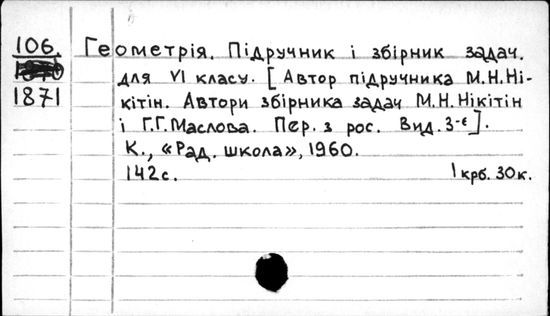 106. Геометрія. Підручник і збірник задач.
для VI класу. [Автор підручника М.Н.Ні-
1871 кітін. Автори збірника задач М.Н.Нікітін
і Г.Г.Маслова. Пер. з рос. Вид. 3-є].
К., «Рад. школа», 1960.
142с. 1 крб. 30к.